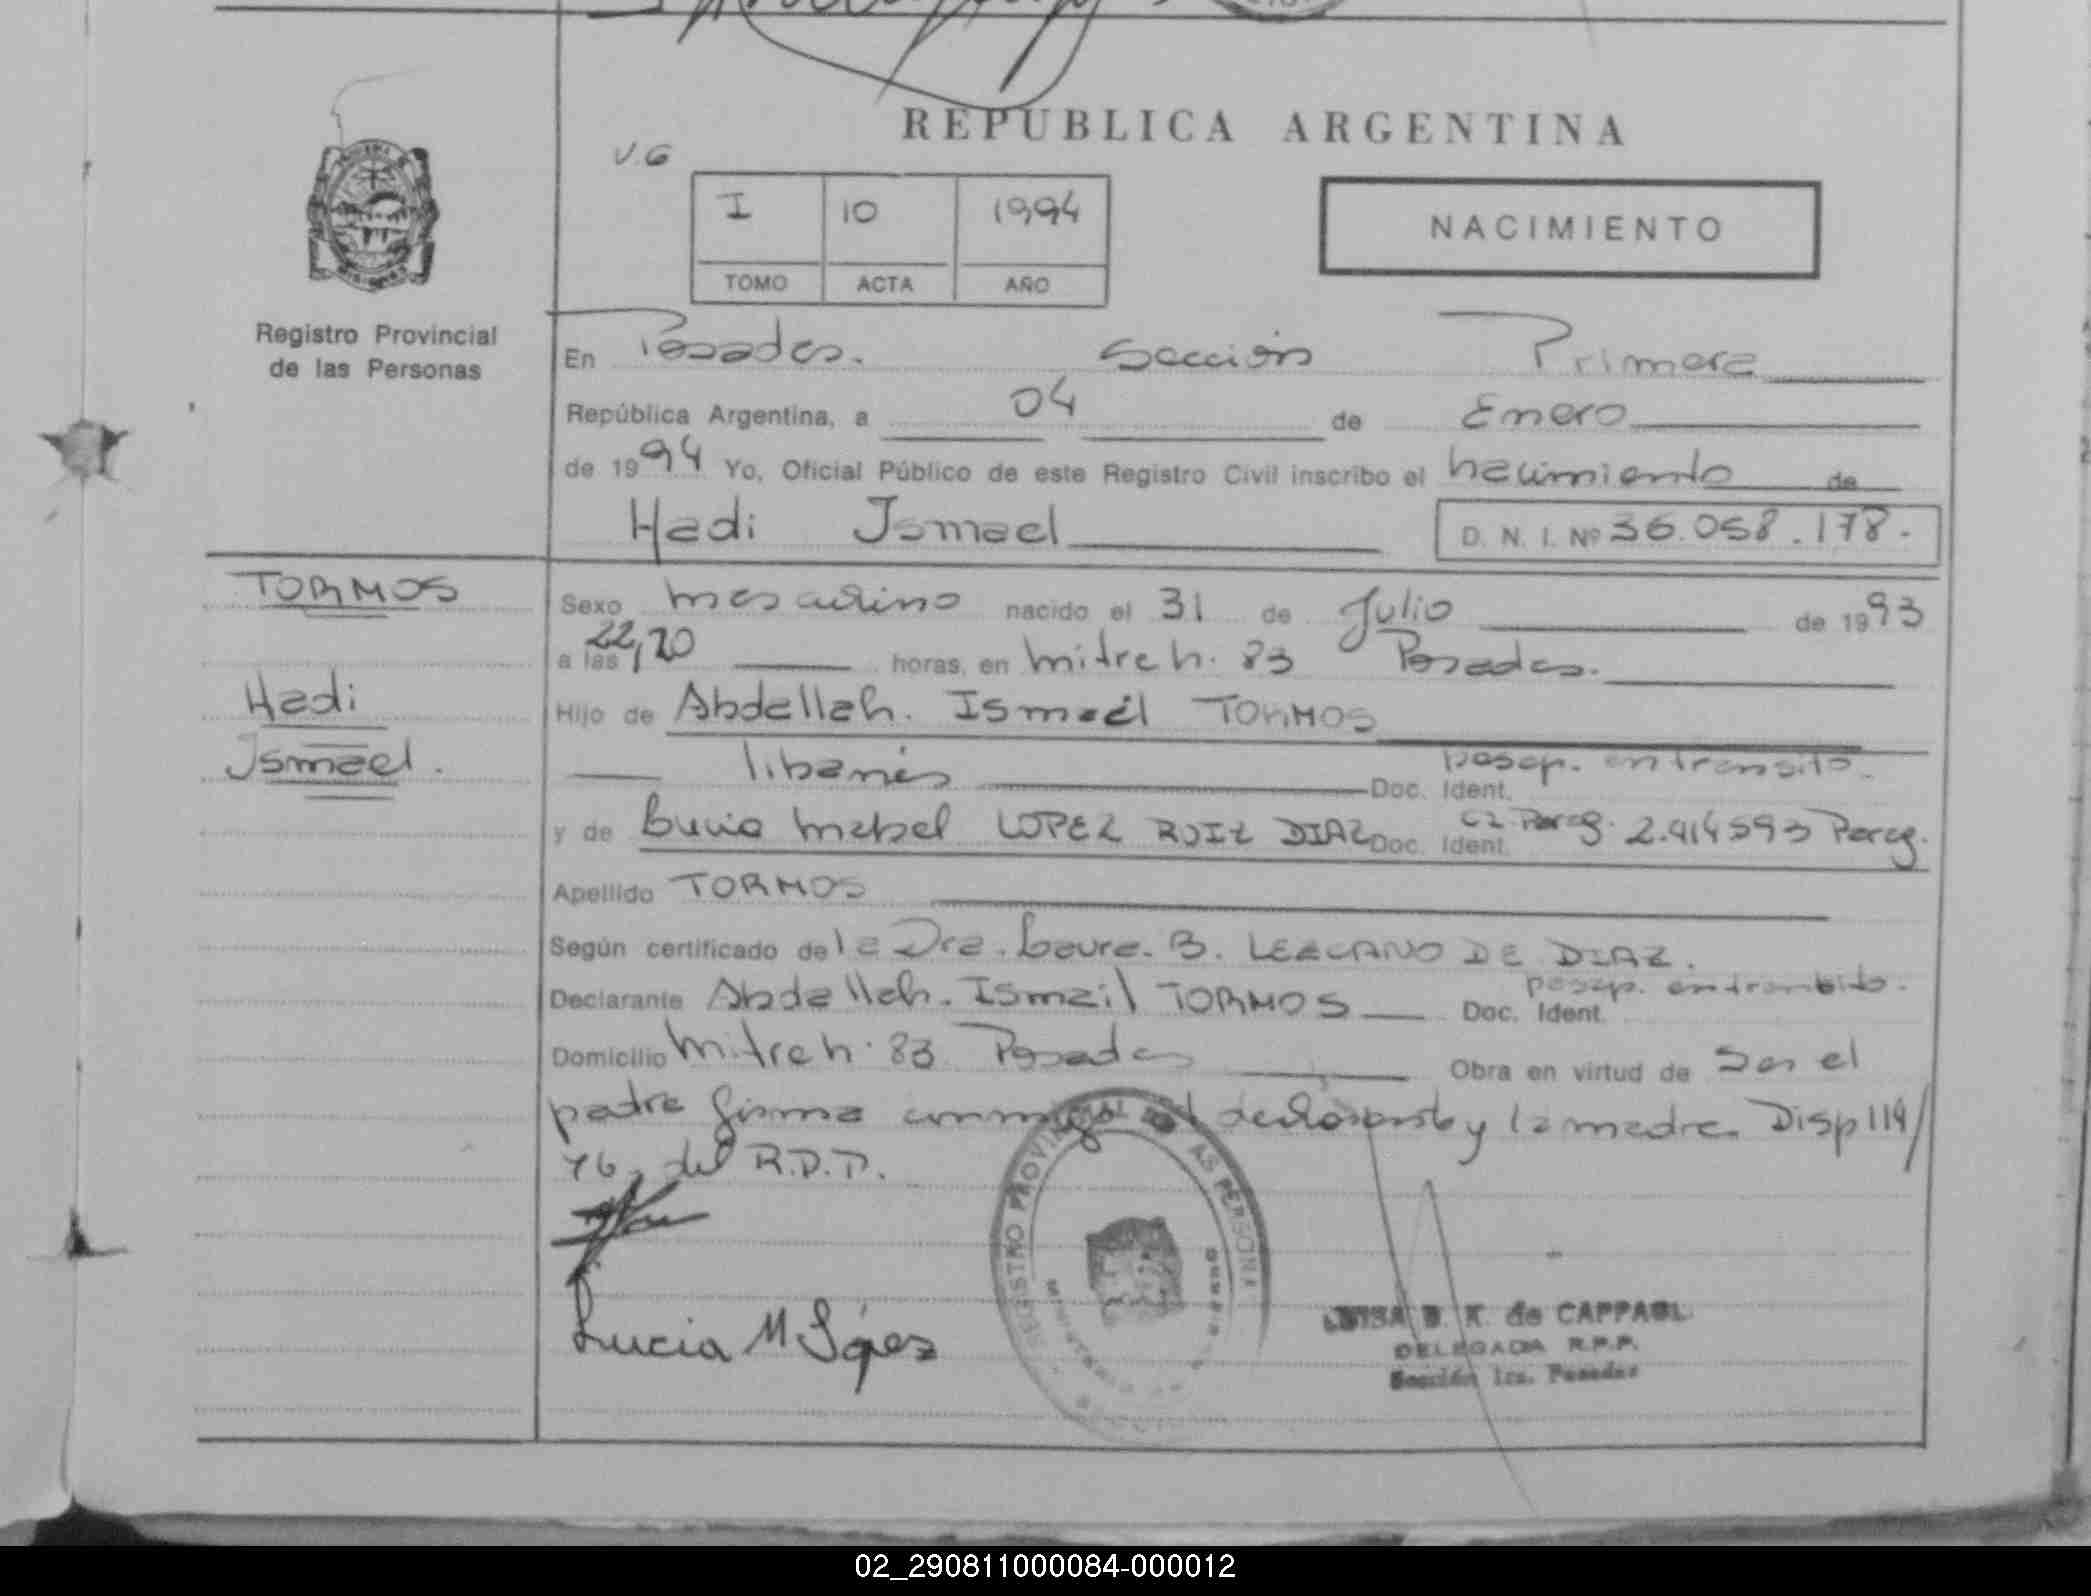 REPUBLICA ARGENTINA
V.G
I 10 1994
TOMO ACTA AÑO
NACIMIENTO
Registro Provincial
de las Personas
En Posadas. Sección Primera
República Argentina, a 04 de Enero
de 1994 Yo, Oficial Público de este Registro Civil inscribo el nacimiento de
Hadi Ismael D. N. I. Nº 36.058.178.
TORMOS
Hadi
Ismael.
Sexo masculino nacido el 31 de Julio de 1993
a las 22,20 horas, en mitre n. 83 Posadas.
Hijo de Abdallah. Ismail TORMOS
libanés Doc. Ident. pasap. en transito.
y de Lucia mabel LOPEZ RUIZ DIAZ Doc. Ident. CI Parag. 2.414593 Parag.
Apellido TORMOS
Según certificado de la Dra. Laura. B. LEZCANO DE DIAZ.
Declarante Abdallah. Ismail TORMOS Doc. Ident. pasap. en transito.
Domicilio mitre n. 83 Posadas Obra en virtud de ser el
padre firma conmigo el declarante y la madre. Disp 114/
76, del R.D.P.
REGISTRO PROVINCIAL DE LAS PERSONAS
Lucia M López
LUISA B. K. de CAPPAGL
DELEGADA R.P.P.
Sección 1ra. Posadas
02_290811000084-000012